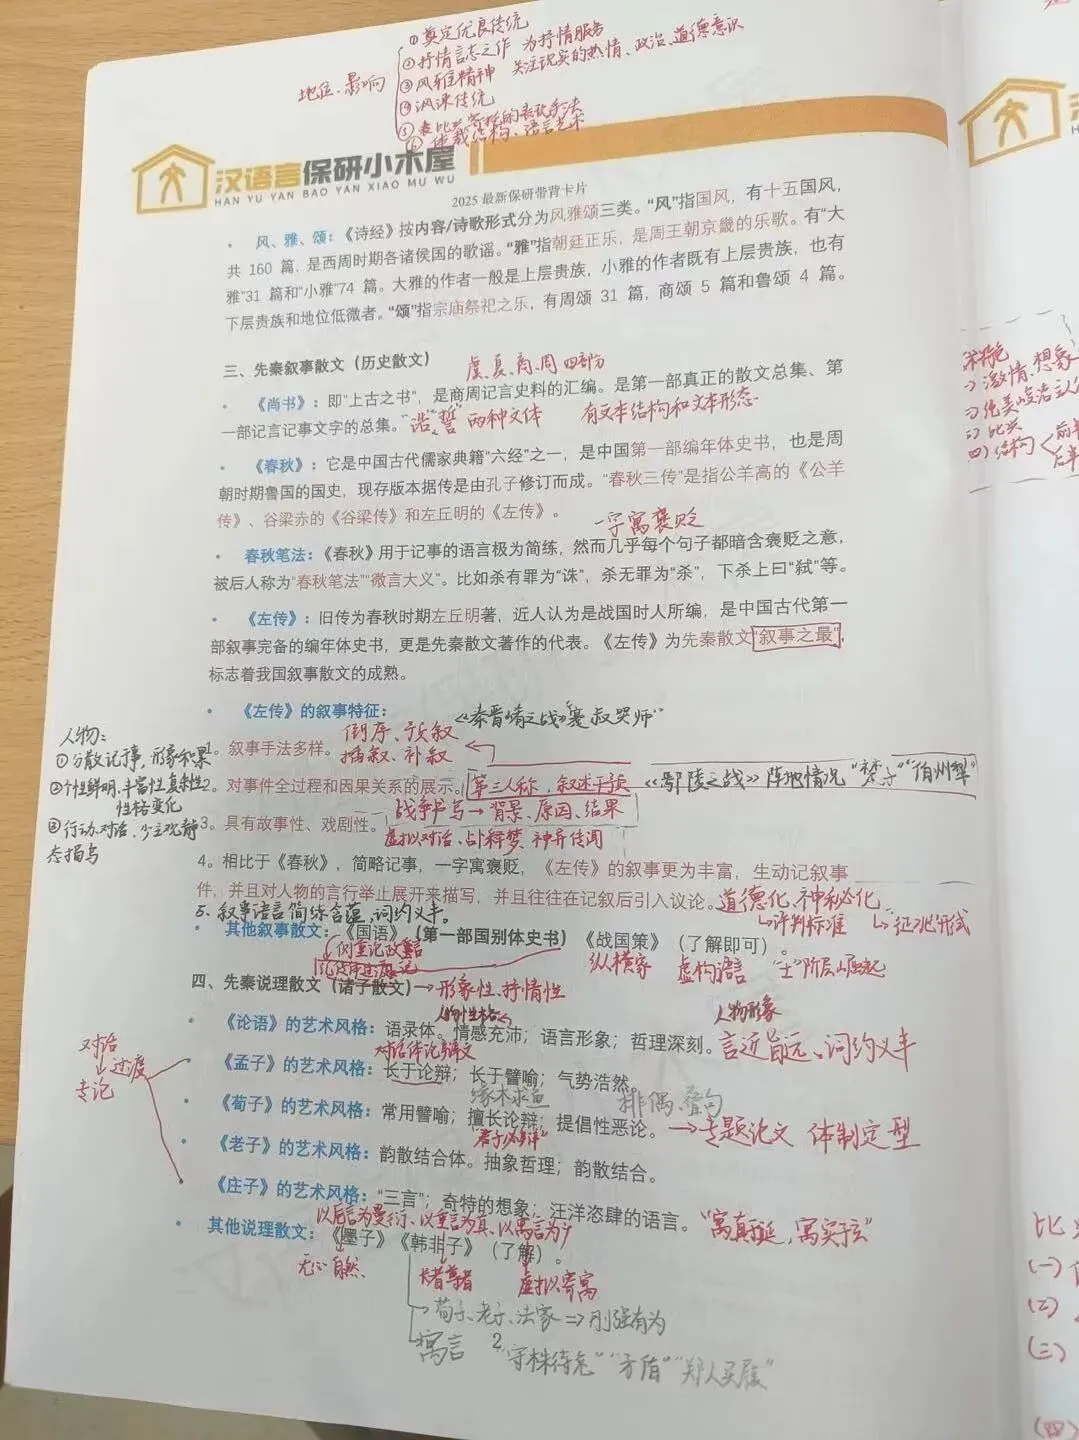 地位、影响
①奠定优良传统
②抒情言志之作 为抒情服务
③风雅精神 关注现实的热情、政治、道德意识
④讽谏传统
⑥体裁结构、语言艺术
汉语言保研小木屋
HAN YU YAN BAO YAN XIAO MU WU
2025 最新保研带背卡片
• 风、雅、颂：《诗经》按内容/诗歌形式分为风雅颂三类。“风”指国风，有十五国风，
共 160 篇，是西周时期各诸侯国的歌谣。“雅”指朝廷正乐，是周王朝京畿的乐歌。有“大
雅”31 篇和“小雅”74 篇。大雅的作者一般是上层贵族，小雅的作者既有上层贵族，也有
下层贵族和地位低微者。“颂”指宗庙祭祀之乐，有周颂 31 篇，商颂 5 篇和鲁颂 4 篇。
三、先秦叙事散文（历史散文）
虞、夏、商、周四部分
• 《尚书》：即“上古之书”，是商周记言史料的汇编。是第一部真正的散文总集、第
一部记言记事文字的总集。
“诰”“誓”两种文体 有文本结构和文本形态
• 《春秋》：它是中国古代儒家典籍“六经”之一，是中国第一部编年体史书，也是周
朝时期鲁国的国史，现存版本据传是由孔子修订而成。“春秋三传”是指公羊高的《公羊
传》、谷梁赤的《谷梁传》和左丘明的《左传》。
一字寓褒贬
• 春秋笔法：《春秋》用于记事的语言极为简练，然而几乎每个句子都暗含褒贬之意，
被后人称为“春秋笔法”“微言大义”。比如杀有罪为“诛”，杀无罪为“杀”，下杀上曰“弑”等。
• 《左传》：旧传为春秋时期左丘明著，近人认为是战国时人所编，是中国古代第一
部叙事完备的编年体史书，更是先秦散文著作的代表。《左传》为先秦散文“叙事之最”，
标志着我国叙事散文的成熟。
• 《左传》的叙事特征：
《秦晋崤之战》“蹇叔哭师”
倒序、预叙
插叙、补叙
1。叙事手法多样。
2。对事件全过程和因果关系的展示。
第三人称，叙述干预
《鄢陵之战》阵地情况
战争书写→背景、原因、结果
3。具有故事性、戏剧性。
虚拟对话、占释梦、神异传闻
4。相比于《春秋》，简略记事，一字寓褒贬，《左传》的叙事更为丰富，生动记叙事
件，并且对人物的言行举止展开来描写，并且往往在记叙后引入议论。
道德化、神秘化
评判标准
5、叙事语言简练含蕴，词约义丰。
人物：
①分散记事，形象积累
②个性鲜明、丰富性、复杂性
性格变化
③行动、对话，少主观静
态描写
• 其他叙事散文：《国语》（第一部国别体史书）《战国策》（了解即可）。
侧重记政言
纵横家 虚构语言 “士”阶层崛起
四、先秦说理散文（诸子散文）
→形象性、抒情性
人物性格
人物形象
• 《论语》的艺术风格：语录体。情感充沛；语言形象；哲理深刻。
言近旨远、词约义丰
对话体论辩文
• 《孟子》的艺术风格：长于论辩；长于譬喻；气势浩然。
缘木求鱼 排偶、叠句
• 《荀子》的艺术风格：常用譬喻；擅长论辩；提倡性恶论。
→专题论文 体制定型
• 《老子》的艺术风格：韵散结合体。抽象哲理；韵散结合。
• 《庄子》的艺术风格：“三言”；奇特的想象；汪洋恣肆的语言。
以卮言为曼衍、以重言为真、以寓言为广
• 其他说理散文：《墨子》《韩非子》（了解）。
对话
↓过渡
专论
长者尊者 虚拟、寄寓
荀子、老子、法家⇒刚强有为
寓言 “守株待兔”“矛盾”“郑人买履”
2
激情、想象
比兴
结构
（一）
（二）
（三）
（四）